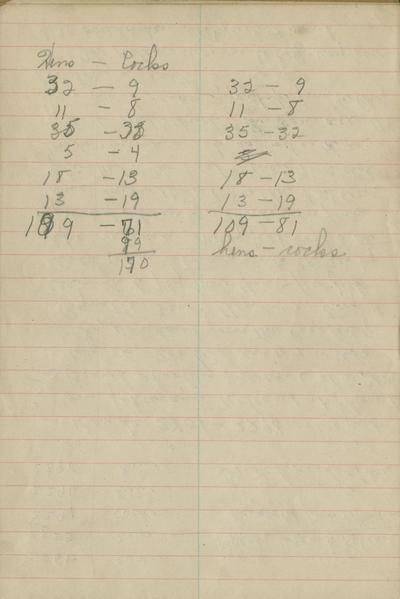 Hens — Cocks
32 — 9
11 — 8
35 — 33
5 — 4
18 — 13
13 — 19
109 — 71
99
170
32 — 9
11 — 8
35 — 32
18 — 13
13 — 19
109 — 81
hens — cocks